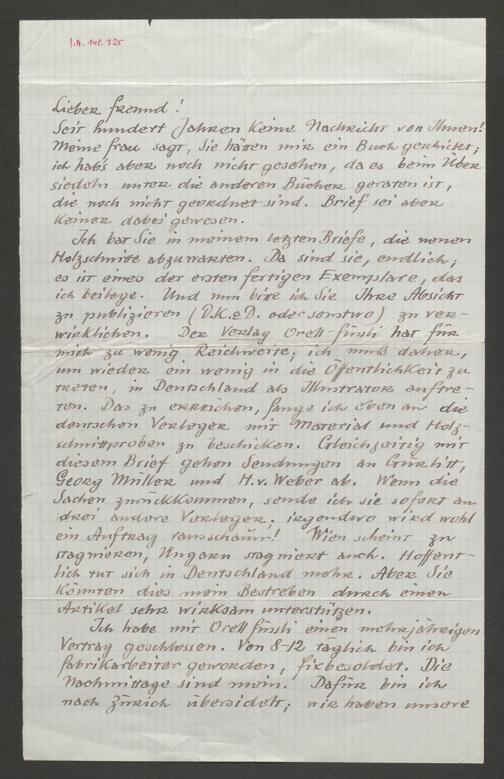 I.N. 148.325
Lieber Freund!
Seit hundert Jahren keine Nachricht von Ihnen!
Meine Frau sagt, Sie hätten mir ein Buch geschickt;
ich hab's aber noch nicht gesehen, da es beim Über
siedeln unter die anderen Bücher geraten ist,
die noch nicht geordnet sind. Brief sei aber
keiner dabei gewesen.
Ich bat Sie in meinem letzten Briefe, die neuen
Holzschnitte abzuwarten. Da sind sie, endlich;
es ist eines der ersten fertigen Exemplare, das
ich beilege. Und nun bitte ich Sie Ihre Absicht
zu publizieren (D.K.e D. oder sonstwo) zu ver-
wirklichen. Der Verlag Orell-Füssli hat für
mich zu wenig Reichweite; ich muß daher,
um wieder ein wenig in die Öffentlichkeit zu
treten, in Deutschland als Illustrator auftre-
ten. Das zu erreichen, fange ich eben an die
deutschen Verleger mit Material und Holz-
schnittproben zu beschicken. Gleichzeitig mit
diesem Brief gehen Sendungen an Gurlitt,
Georg Müller und H.v. Weber ab. Wenn die
Sachen zurückkommen, sende ich sie sofort an
drei andere Verleger; irgendwo wird wohl
ein Auftrag rausschaun! Wien scheint zu
stagnieren, Ungarn stagniert auch. Hoffent-
lich tut sich in Deutschland mehr. Aber Sie
könnten dies mein Bestreben durch einen
Artikel sehr wirksam unterstützen.
Ich habe mit Orell Füssli einen mehrjährigen
Vertrag geschlossen. Von 8-12 täglich bin ich
Fabrikarbeiter geworden, fixbesoldet. Die
Nachmittage sind mein. Dafür bin ich
nach Zürich übersiedelt; wir haben unsere